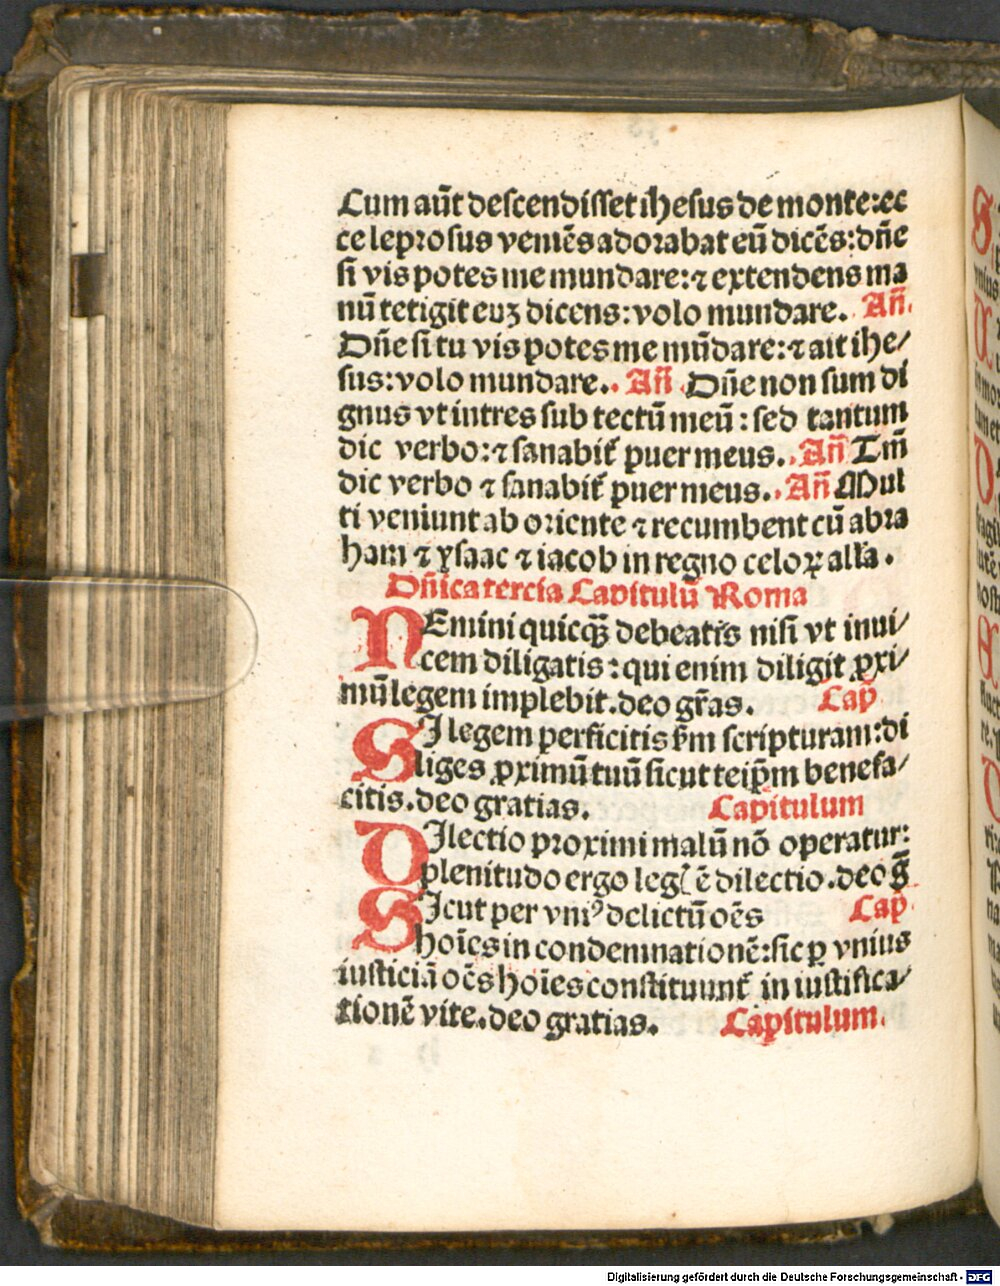 Cum aūt descendisset ihesus de monte: ec
ce leprosus veniēs adorabat eū dicēs: dn̄e
si vis potes me mundare: ⁊ extendens ma
nū tetigit euꝫ dicens: volo mundare. An̄.
Dn̄e si tu vis potes me mūdare: ⁊ ait ihe/
sus: volo mundare.. An̄ .Dn̄e non sum di
gnus vt intres sub tectū meū: sed tantum
dic verbo: ⁊ sanabit̄ puer meus.. An̄ Tm̄
dic verbo ⁊ sanabit̄ puer meus.. An̄ Mul
ti veniunt ab oriente ⁊ recumbent cū abra
ham ⁊ ysaac ⁊ iacob in regno celoꝝ alla.
Dn̄ica tercia Capitulū Roma
NEmini quicqȝ̄ debeatis nisi vt inui/
cem diligatis: qui enim diligit ꝓxi/
mū legem implebit. deo gr̄as. Cap̄
SI legem perficitis s̄m scripturam: di
liges ꝓximū tuū sicut teip̄m benefa/
citis. deo gratias. Capitulum
DIlectio proximi malū nō operatur:
plenitudo ergo legꝭ ē dilectio. deo ḡ
SIcut per vniꝰ delictū oēs Cap̄.
hoīes in condemnationē: sic ꝑ vnius
iusticiā oēs hoīes constituunt̄ in iustifica/
tionē vite. deo gratias. Capitulum.
Digitalisierung gefördert durch die Deutsche Forschungsgemeinschaft - DFG